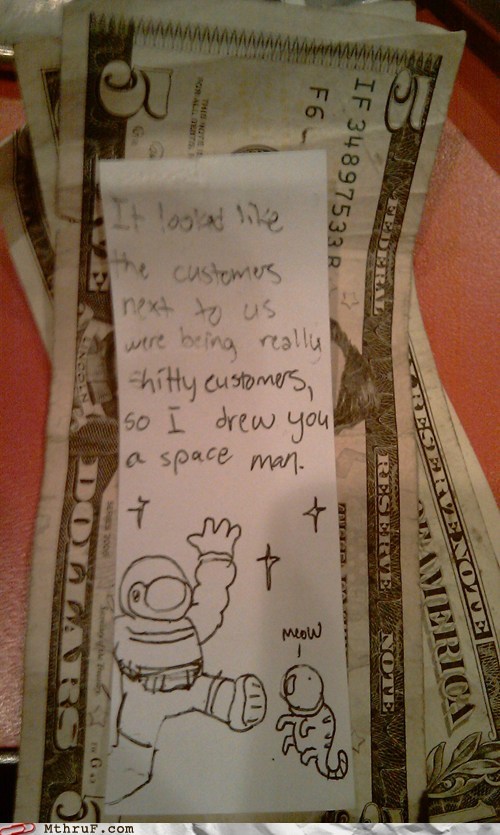 5
5
IF34897533B
F6
FEDERAL
RESERVE
NOTE
DOLLARS
RESERVE NOTE
AMERICA
5
It looked like
the customers
next to us
were being really
shitty customers,
so I drew you
a space man.
meow
MThruF.com